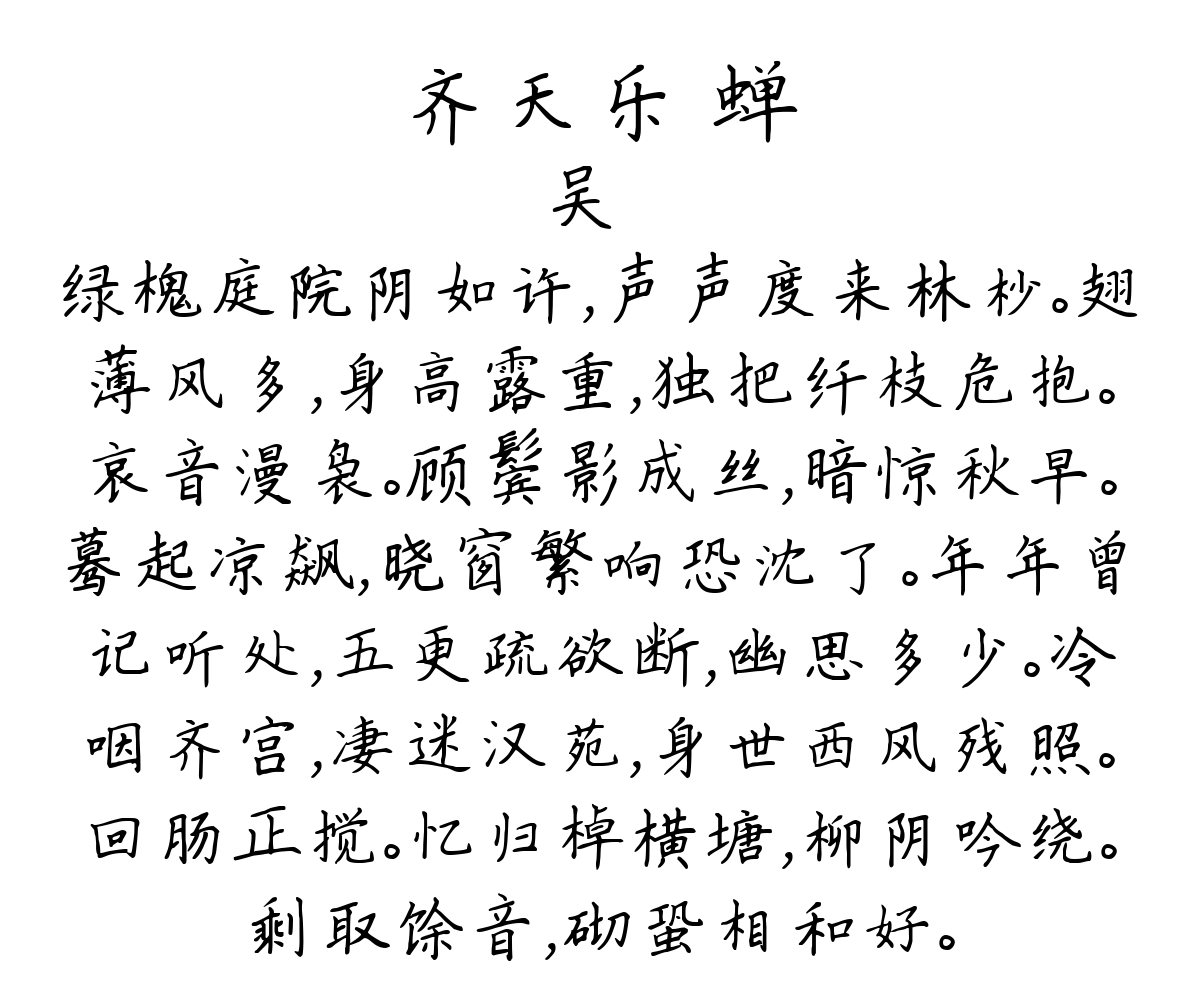 齐天乐 蝉
吴
绿槐庭院阴如许,声声度来林杪。翅
薄风多,身高露重,独把纤枝危抱。
哀音漫袅。顾鬓影成丝,暗惊秋早。
蓦起凉飙,晓窗繁响恐沈了。年年曾
记听处,五更疏欲断,幽思多少。冷
咽齐宫,凄迷汉苑,身世西风残照。
回肠正搅。忆归棹横塘,柳阴吟绕。
剩取馀音,砌蛩相和好。